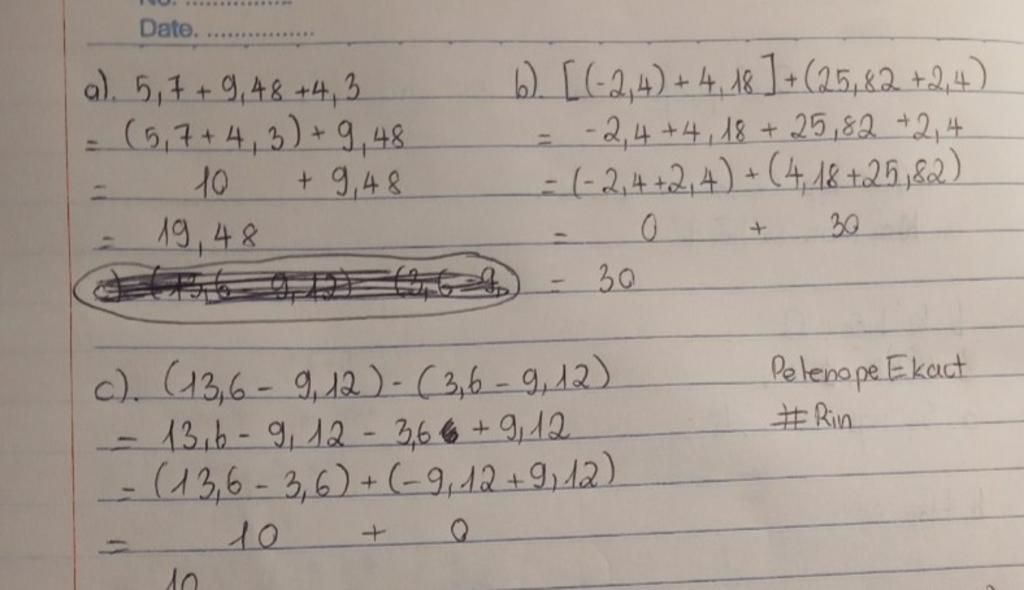 No. ..................
Date. ..................
a). 5,7 + 9,48 + 4,3
= (5,7 + 4,3) + 9,48
= 10 + 9,48
= 19,48
b). [(-2,4) + 4,18] + (25,82 + 2,4)
= -2,4 + 4,18 + 25,82 + 2,4
= (-2,4 + 2,4) + (4,18 + 25,82)
= 0 + 30
= 30
c) (13,6 - 9,12) - (3,6 - 9,
c). (13,6 - 9,12) - (3,6 - 9,12)
= 13,6 - 9,12 - 3,6 + 9,12
= (13,6 - 3,6) + (-9,12 + 9,12)
= 10 + 0
10
Pelenope Ekact
#Rin